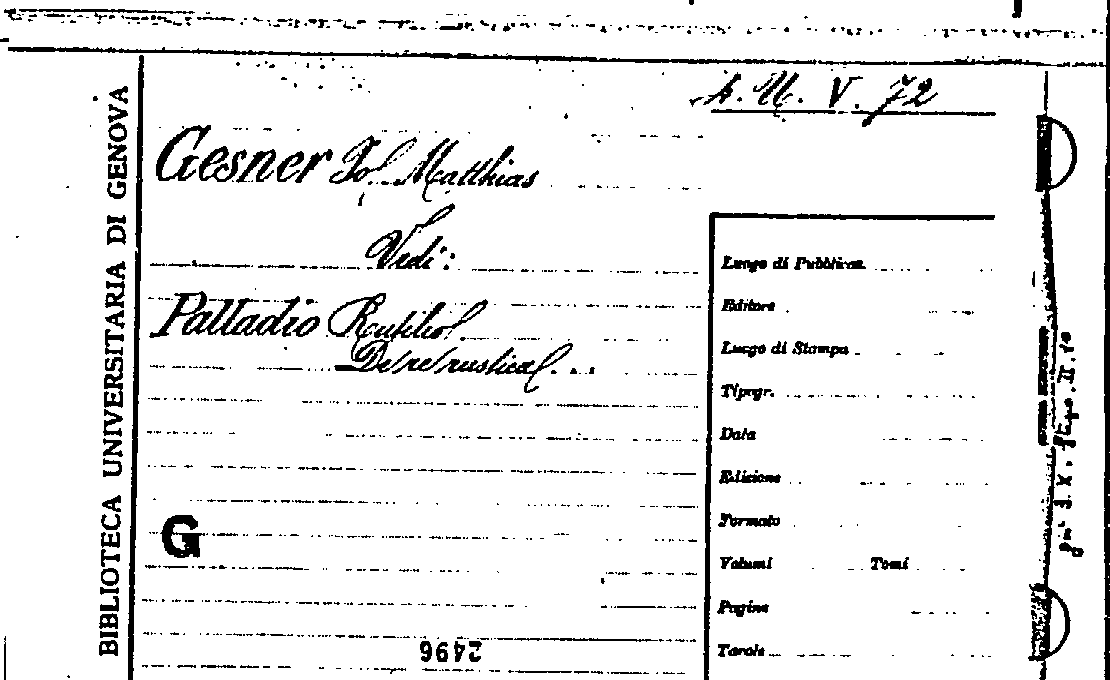 A. U. V. 72
Gesner Jo. Matthias
Vedi:
Palladio Rutilio.
De re rustica. . .
G
2496
BIBLIOTECA UNIVERSITARIA DI GENOVA
Luogo di Pubblicaz.
Editore
Luogo di Stampa
Tipogr.
Data
Edizione
Formato
Volumi Tomi
Pagine
Tavole